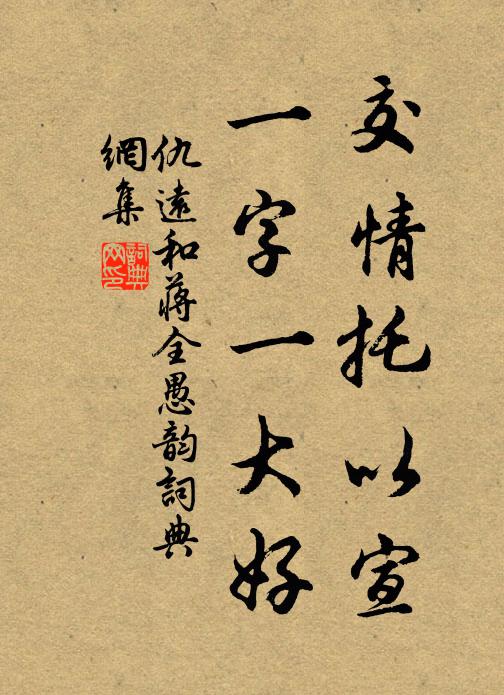 交情托以宣
一字一大好
仇遠和蔣全愚韵詞典
網集
詞典
网印